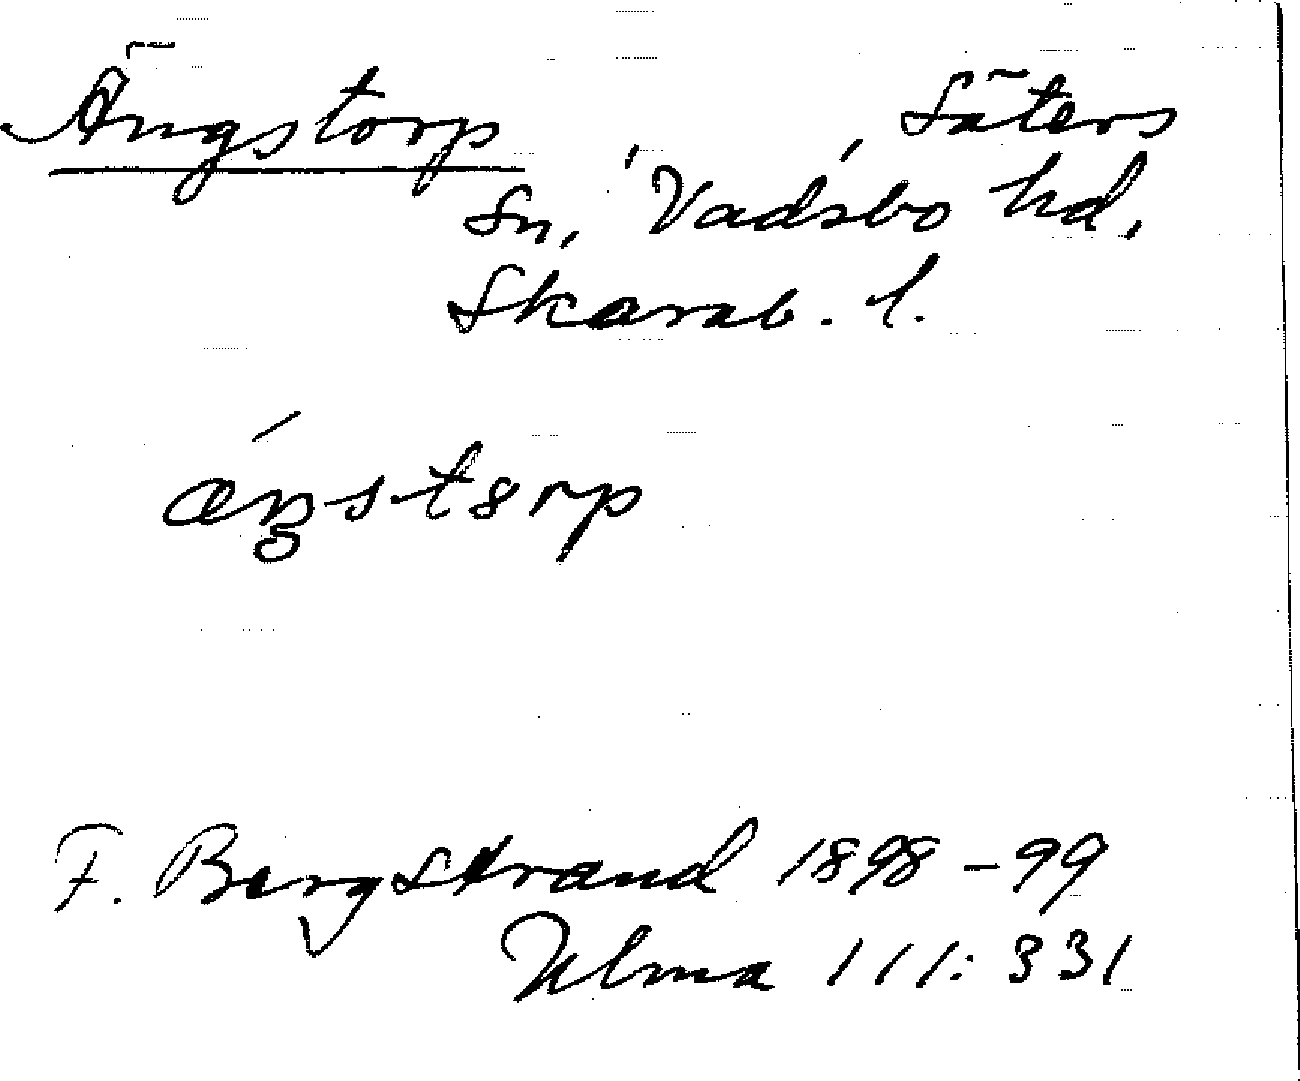 Ängstorp Säters
Sn, Vadsbo hd,
Skarab. l.
æŋstorp
F. Bergstrand 1898-99
Ulma 111:331